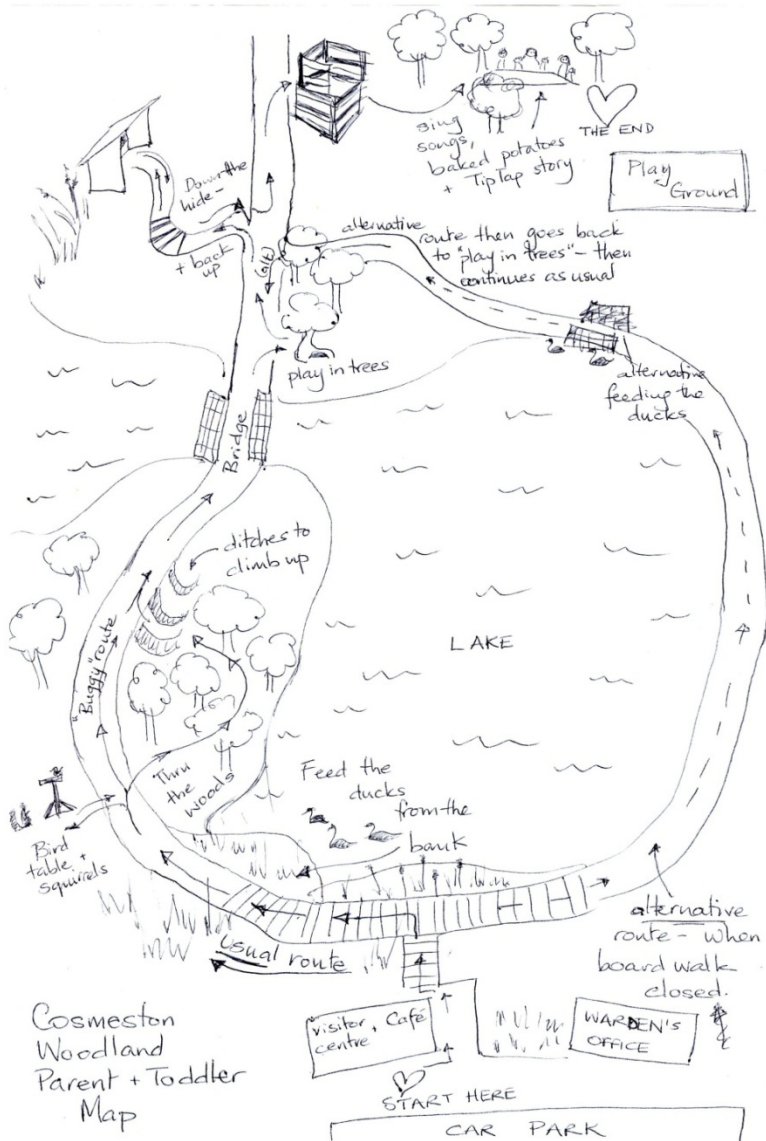 sing
songs,
baked potatoes
+ TipTap story
THE END
Play
Ground
Down the
hide -
+ back
up
(alt)
alternative
route then goes back
to "play in trees" - then
continues as usual
play in trees
alternative
feeding the
ducks
Bridge
ditches to
climb up
"Buggy" route
LAKE
Thru
the
woods
Feed the
ducks
from the
bank
Bird
table +
squirrels
usual route
alternative
route - when
board walk
closed.
Cosmeston
Woodland
Parent + Toddler
Map
visitor + Café
centre
WARDEN'S
OFFICE
START HERE
CAR PARK